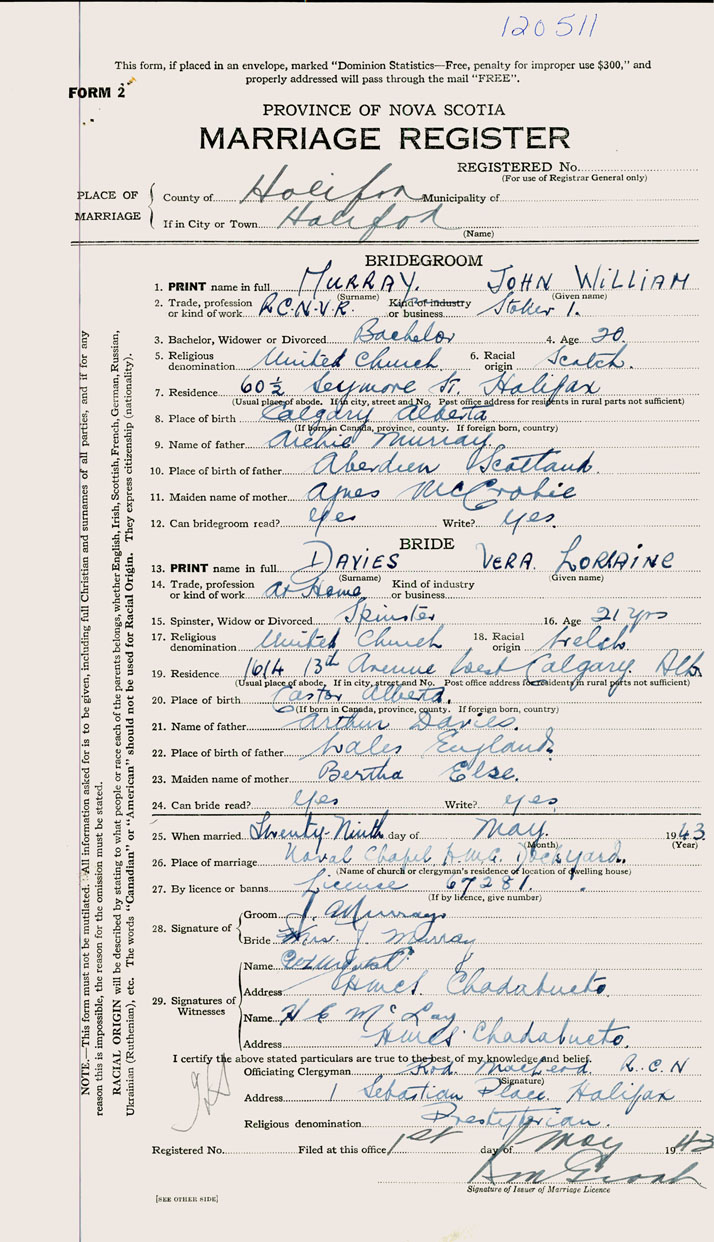 120511
This form, if placed in an envelope, marked "Dominion Statistics—Free, penalty for improper use $300," and
properly addressed will pass through the mail "FREE".
FORM 2
PROVINCE OF NOVA SCOTIA
MARRIAGE REGISTER
REGISTERED No.
(For use of Registrar General only)
PLACE OF MARRIAGE
County of Halifax Municipality of
If in City or Town Halifax
(Name)
BRIDEGROOM
1. PRINT name in full MURRAY. JOHN WILLIAM
(Surname) (Given name)
2. Trade, profession or kind of work R.C.N.V.R. Kind of industry or business Stoker 1.
3. Bachelor, Widower or Divorced Bachelor 4. Age 20
5. Religious denomination United Church 6. Racial origin Scotch.
7. Residence 60½ Seymore St. Halifax
(Usual place of abode. If in city, street and No. Post office address for residents in rural parts not sufficient)
8. Place of birth Calgary Alberta
(If born in Canada, province, county. If foreign born, country)
9. Name of father Archie Murray
10. Place of birth of father Aberdien Scotland.
11. Maiden name of mother Agnes McCrobie
12. Can bridegroom read? Yes Write? Yes.
BRIDE
13. PRINT name in full DAVIES VERA. LORRAINE
(Surname) (Given name)
14. Trade, profession or kind of work at Home Kind of industry or business
15. Spinster, Widow or Divorced Spinster 16. Age 21 yrs
17. Religious denomination United Church 18. Racial origin Welsh.
19. Residence 1614 13th Avenue West Calgary Alb.
(Usual place of abode. If in city, street and No. Post office address for residents in rural parts not sufficient)
20. Place of birth Castor Alberta.
(If born in Canada, province, county. If foreign born, country)
21. Name of father Arthur Davies.
22. Place of birth of father Wales England.
23. Maiden name of mother Bertha Else.
24. Can bride read? Yes Write? yes
25. When married Twenty-Ninth day of May. 1943
(Month) (Year)
26. Place of marriage Naval Chapel H.M.C. Dockyard.
(Name of church or clergyman's residence or location of dwelling house)
27. By licence or banns License 67281.
(If by licence, give number)
28. Signature of
Groom J. Murray
Bride Mrs. J. Murray
29. Signatures of Witnesses
Name
Address HMCS Chadabucto.
Name H E McLay
Address HMCS Chadabucto.
I certify the above stated particulars are true to the best of my knowledge and belief.
Officiating Clergyman Rod. MacLeod R.C.N
(Signature)
Address 1 Sebastian Place. Halifax
Religious denomination Presbyterian.
Registered No. Filed at this office 1st day of May 1943
Signature of Issuer of Marriage Licence
[SEE OTHER SIDE]
NOTE.—This form must not be mutilated. All information asked for is to be given, including full Christian and surnames of all parties, and if for any
reason this is impossible, the reason for the omission must be stated.
RACIAL ORIGIN will be described by stating to what people or race each of the parents belongs, whether English, Irish, Scottish, French, German, Russian,
Ukrainian (Ruthenian), etc. The words "Canadian" or "American" should not be used for Racial Origin. They express citizenship (nationality).